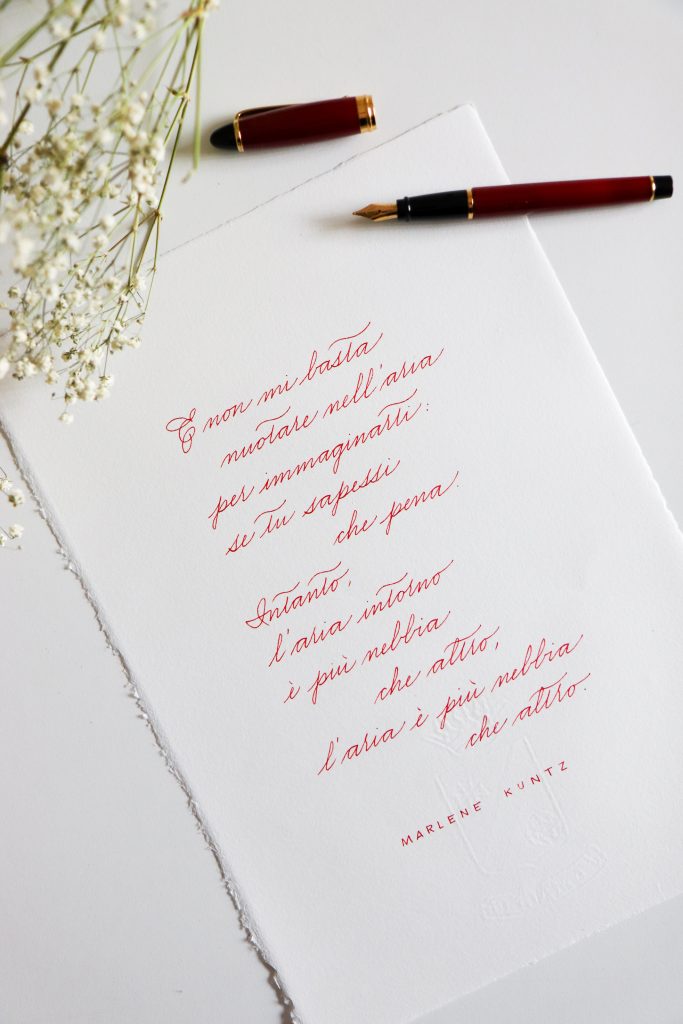 E non mi basta
nuotare nell'aria
per immaginarti:
se tu sapessi
che pena.
Intanto,
l'aria intorno
è più nebbia
che altro,
l'aria è più nebbia
che altro.
MARLENE KUNTZ